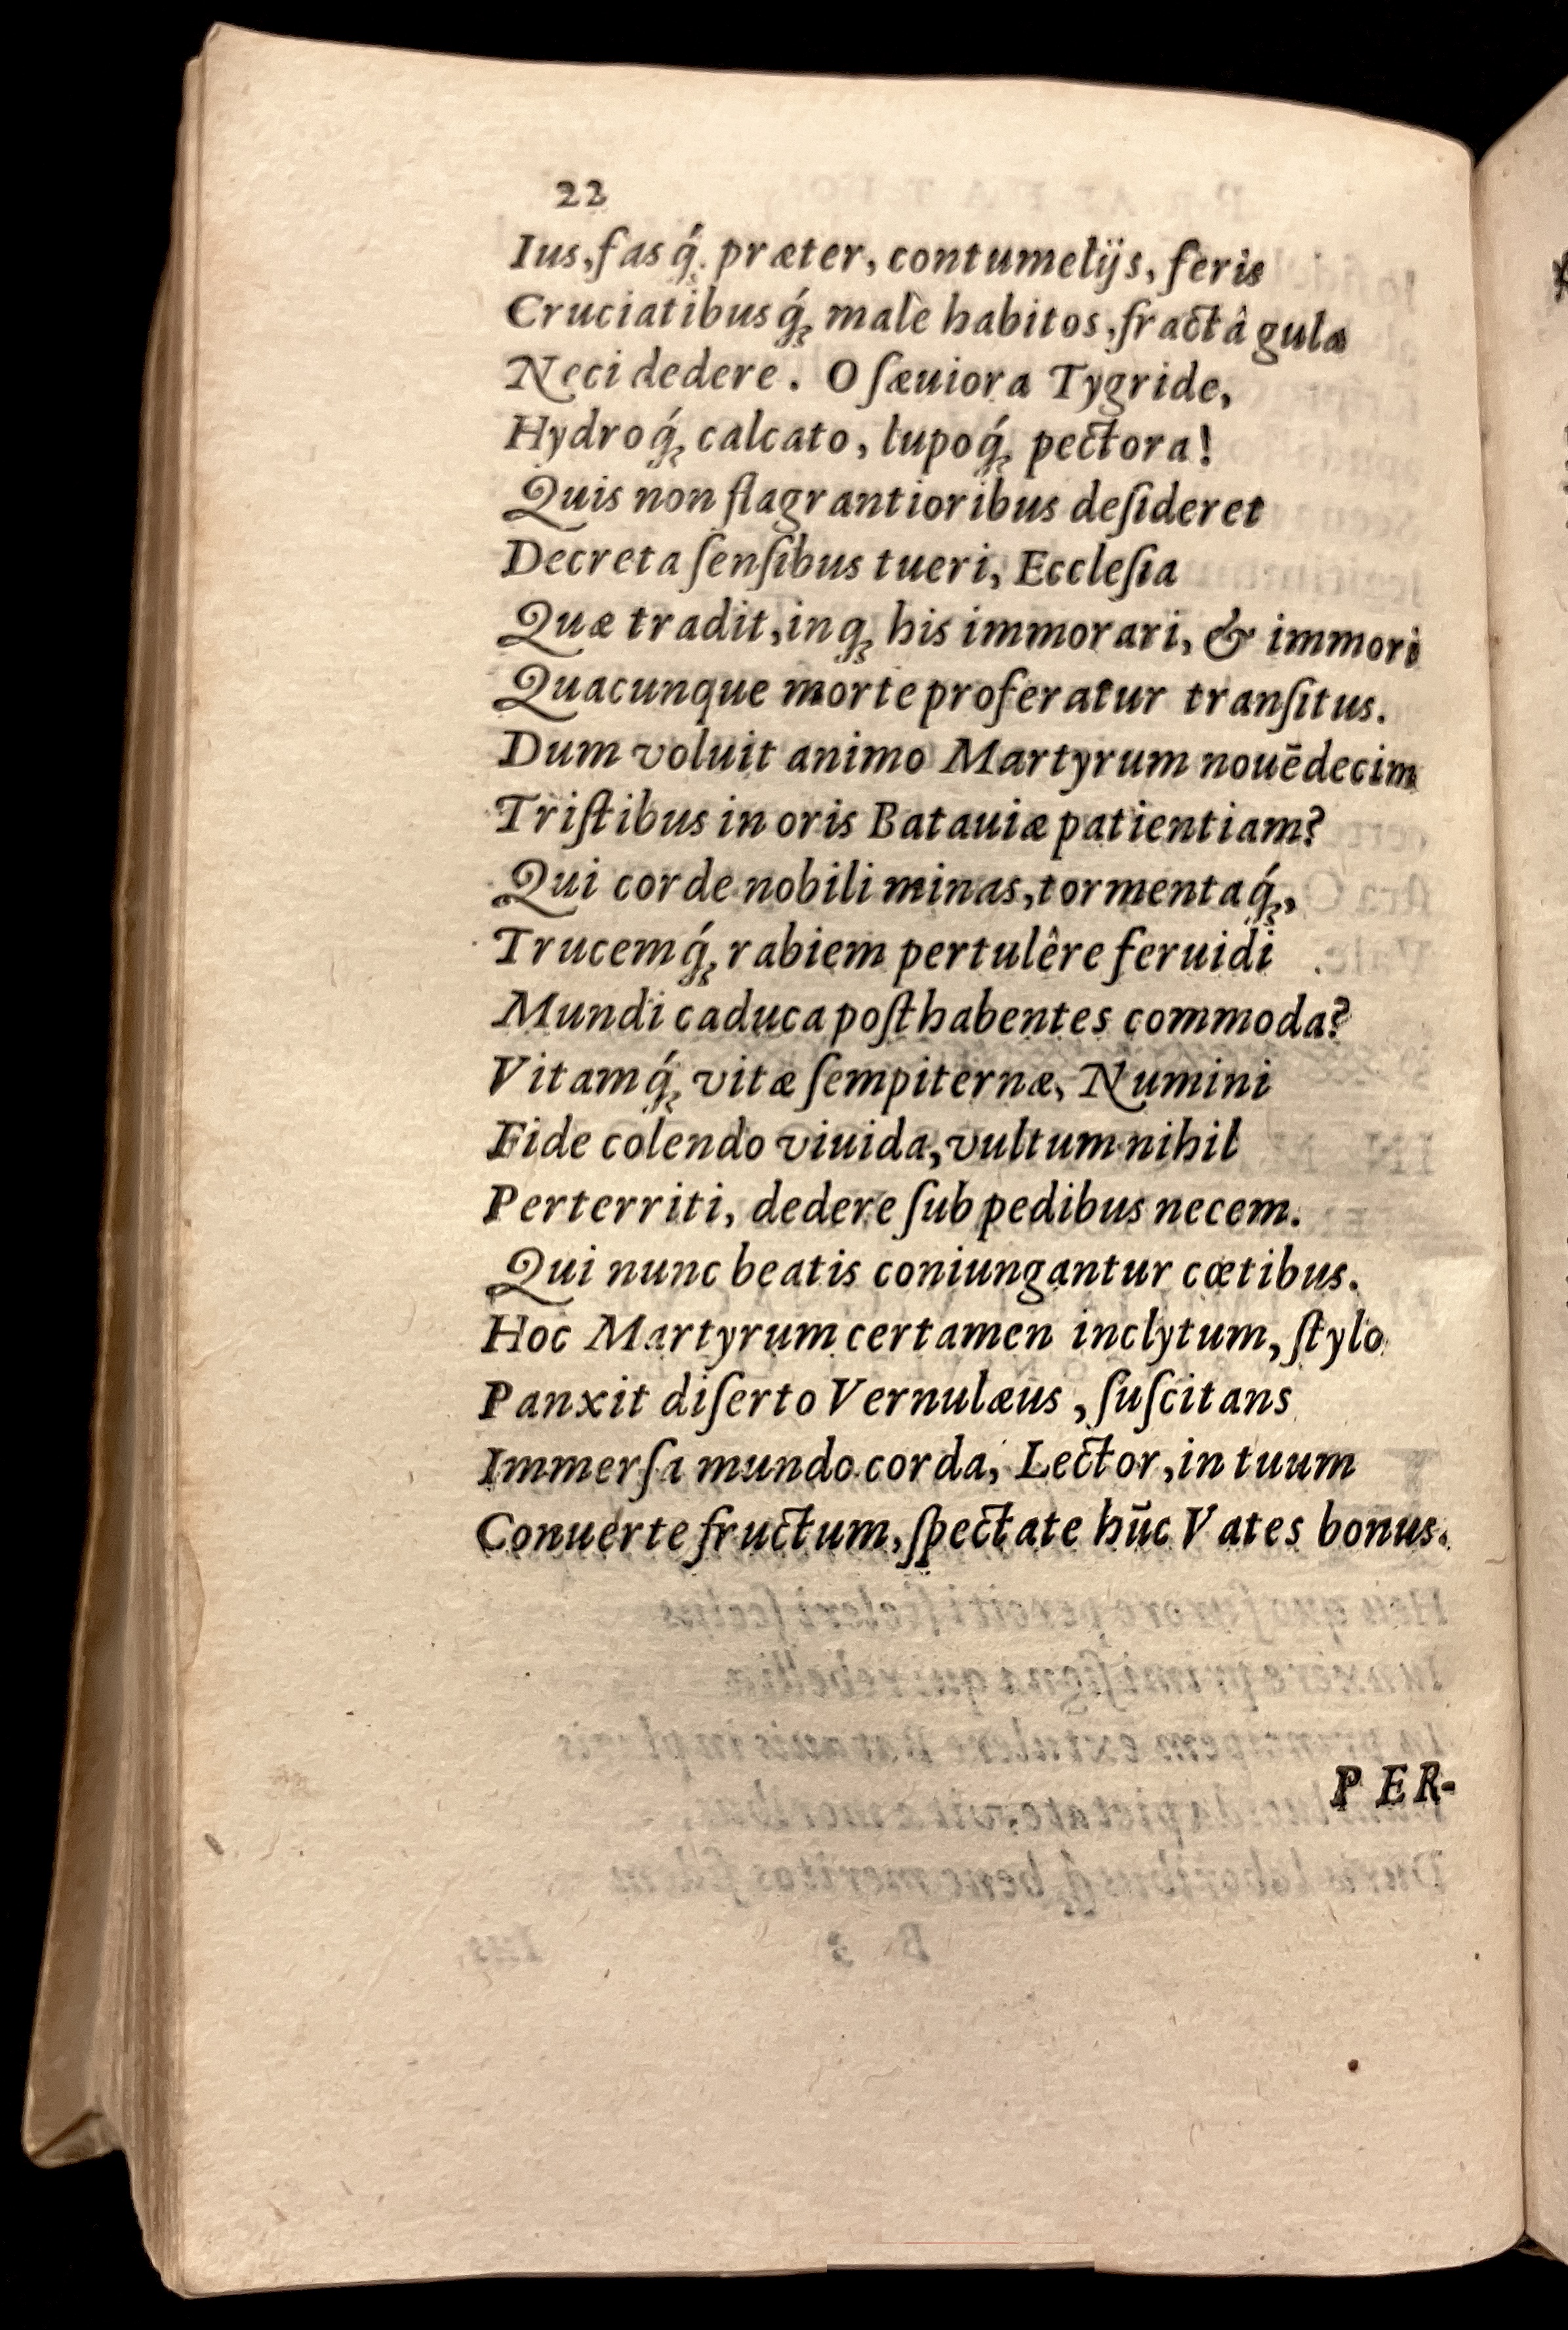 22
Ius, fas q́; præter, contumelijs, feris
Cruciatibusq́; malè habitos, fractâ gula
Neci dedere. O ſæuiora Tygride,
Hydroq́; calcato, lupoq́; pectora!
Quis non flagrantioribus deſideret
Decreta ſenſibus tueri, Eccleſia
Quæ tradit, inq; his immorari, & immori
Quacunque morte proferatur tranſitus.
Dum voluit animo Martyrum nouēdecim
Triſtibus in oris Batauiæ patientiam?
Qui corde nobili minas, tormentaq́;,
Trucemq́; rabiem pertulêre feruidi
Mundi caduca poſthabentes commoda?
Vitamq́; vitæ ſempiternæ, Numini
Fide colendo viuida, vultum nihil
Perterriti, dedere ſub pedibus necem.
Qui nunc beatis coniungantur cœtibus.
Hoc Martyrum certamen inclytum, ſtylo
Panxit diſerto Vernulæus, ſuſcitans
Immerſa mundo corda, Lector, in tuum
Conuerte fructum, ſpectate hūc Vates bonus.
PER-